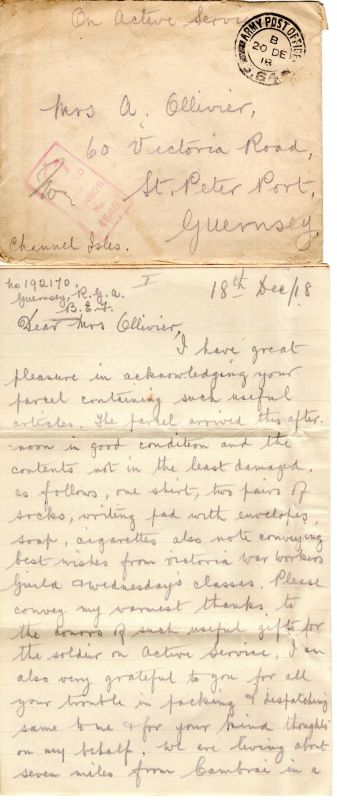 On Active Service
ARMY POST OFFICE
B
20 DE
18
Mrs A. Ollivier,
60 Victoria Road,
St. Peter Port,
Guernsey.
Channel Isles.
I
18th Dec/18
No 192170,
Guernsey, R.G.A.
B.E.F.
Dear Mrs Ollivier,
I have great
pleasure in acknowledging your
parcel containing such useful
articles. The parcel arrived this after-
-noon in good condition and the
contents not in the least damaged,
as follows, one shirt, two pairs of
socks, writing pad with envelopes,
soap, cigarettes also note conveying
best wishes from victoria war workers
Guild & Wednesdays classes. Please
convey my warmest thanks to
the donors of such useful gifts for
the soldier on Active Service, I am
also very grateful to you for all
your trouble in packing & despatching
same to me & for your kind thoughts
on my behalf. We are living about
seven miles from Cambrai in a